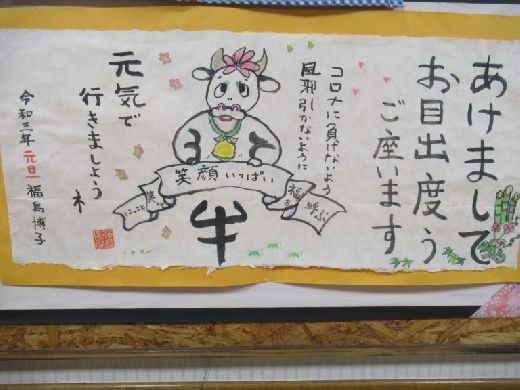 あけまして
お目出度う
ご座います
コロナに負けないよう
風邪引かないように
笑顔いっぱい
福を呼ぶ
牛
元気で
行きましょうネ
令和三年元旦 福馬博子